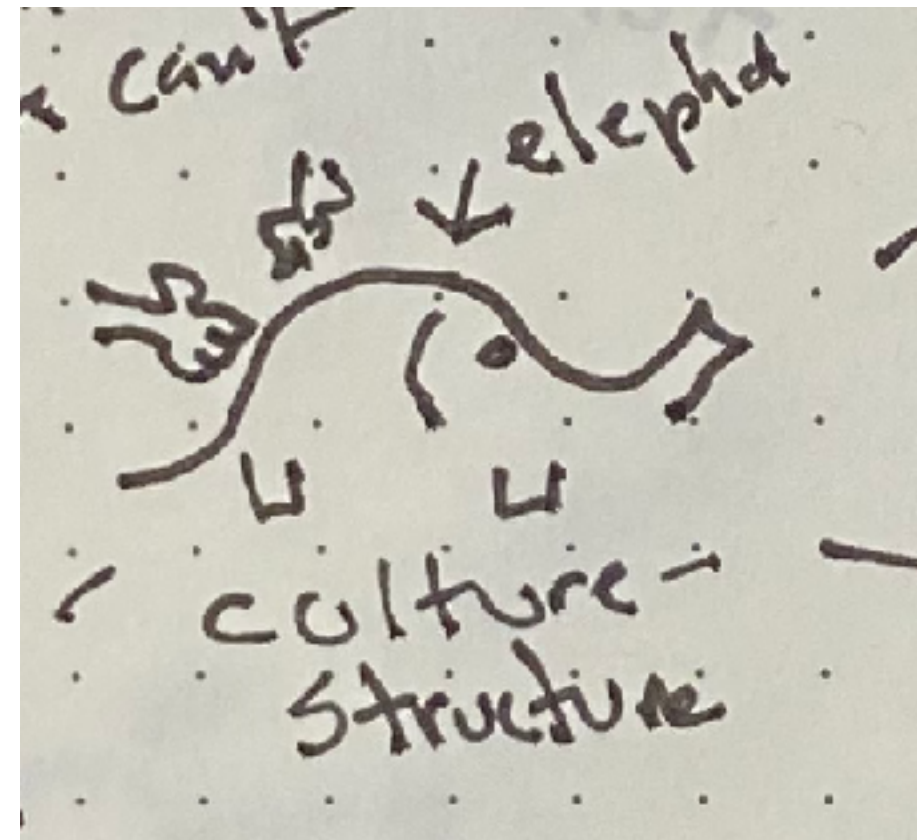 can't
elepha
culture-
structure